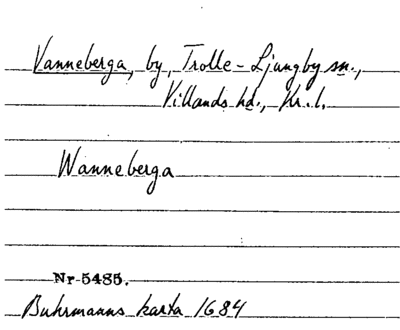 Vanneberga, by, Trolle-Ljungby sn.,
Villands hd., Kr. l.
Wanneberga
Nr 5485.
Buhrmanns karta 1684